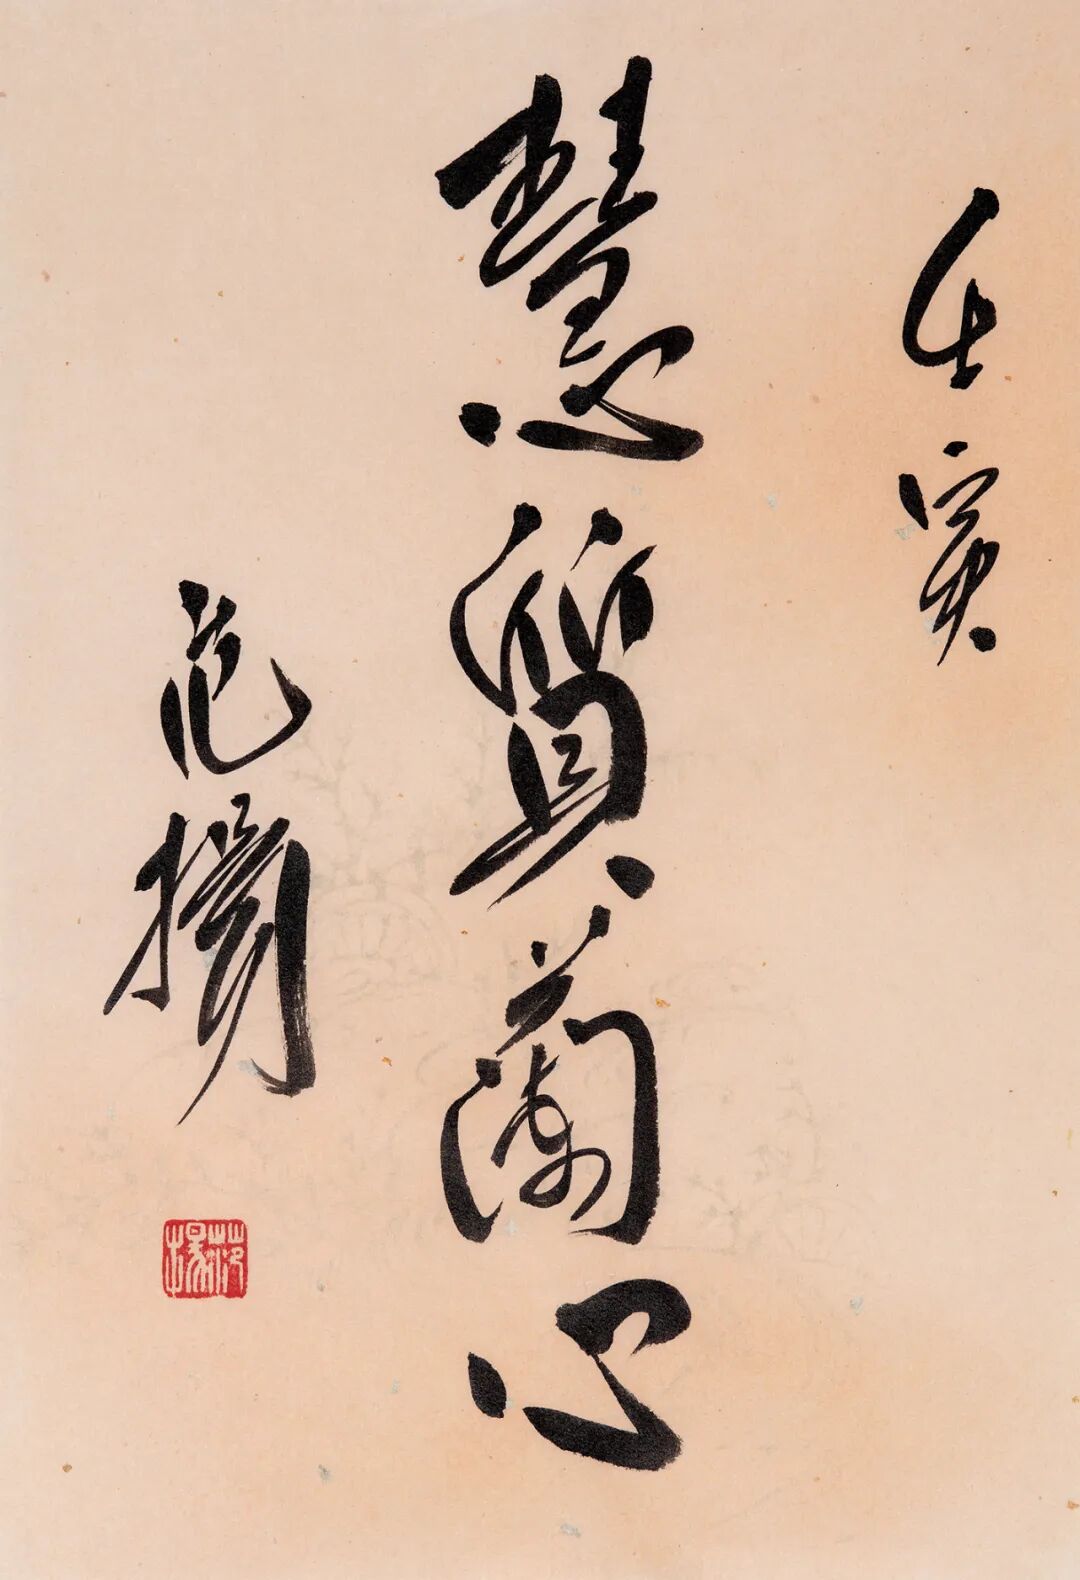 壬寅
慧質蘭心
范揚
范揚